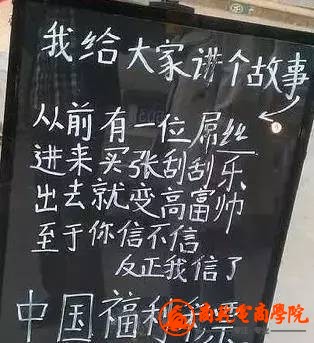 我给大家讲个故事
从前有一位屌丝
进来买张刮刮乐
出去就变高富帅
至于你信不信
反正我信了
中国福利彩票
电商學院